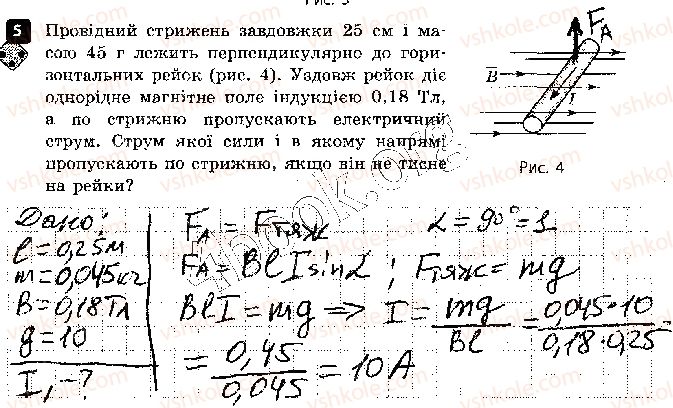 5
Провідний стрижень завдовжки 25 см і ма-
сою 45 г лежить перпендикулярно до гори-
зонтальних рейок (рис. 4). Уздовж рейок діє
однорідне магнітне поле індукцією 0,18 Тл,
а по стрижню пропускають електричний
струм. Струм якої сили і в якому напрямі
пропускають по стрижню, якщо він не тисне
на рейки?
F_A
B
I
Рис. 4
Дано:
l = 0,25 м
m = 0,045 кг
B = 0,18 Тл
g = 10
I, -?
F_A = F_тяж
α = 90° = 1
F_A = BlI sin α ; F_тяж = mg
BlI = mg => I = mg/Bl = 0,045·10/0,18·0,25 =
= 0,45/0,045 = 10 A
vshkole.com
4book.org